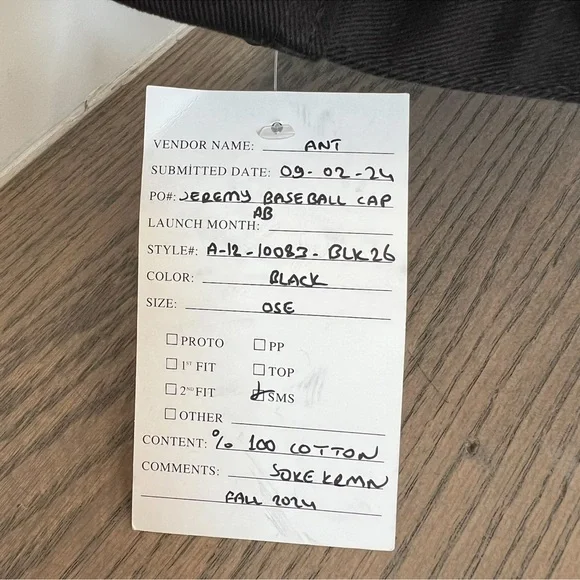 VENDOR NAME: ANT
SUBMİTTED DATE: 09-02-24
PO#: JEREMY BASEBALL CAP
AB
LAUNCH MONTH:
STYLE#: A-12-10083-BLK26
COLOR: BLACK
SIZE: OSE
PROTO PP
1ST FIT TOP
2ND FIT SMS
OTHER
CONTENT: % 100 COTTON
COMMENTS:
FALL 2024